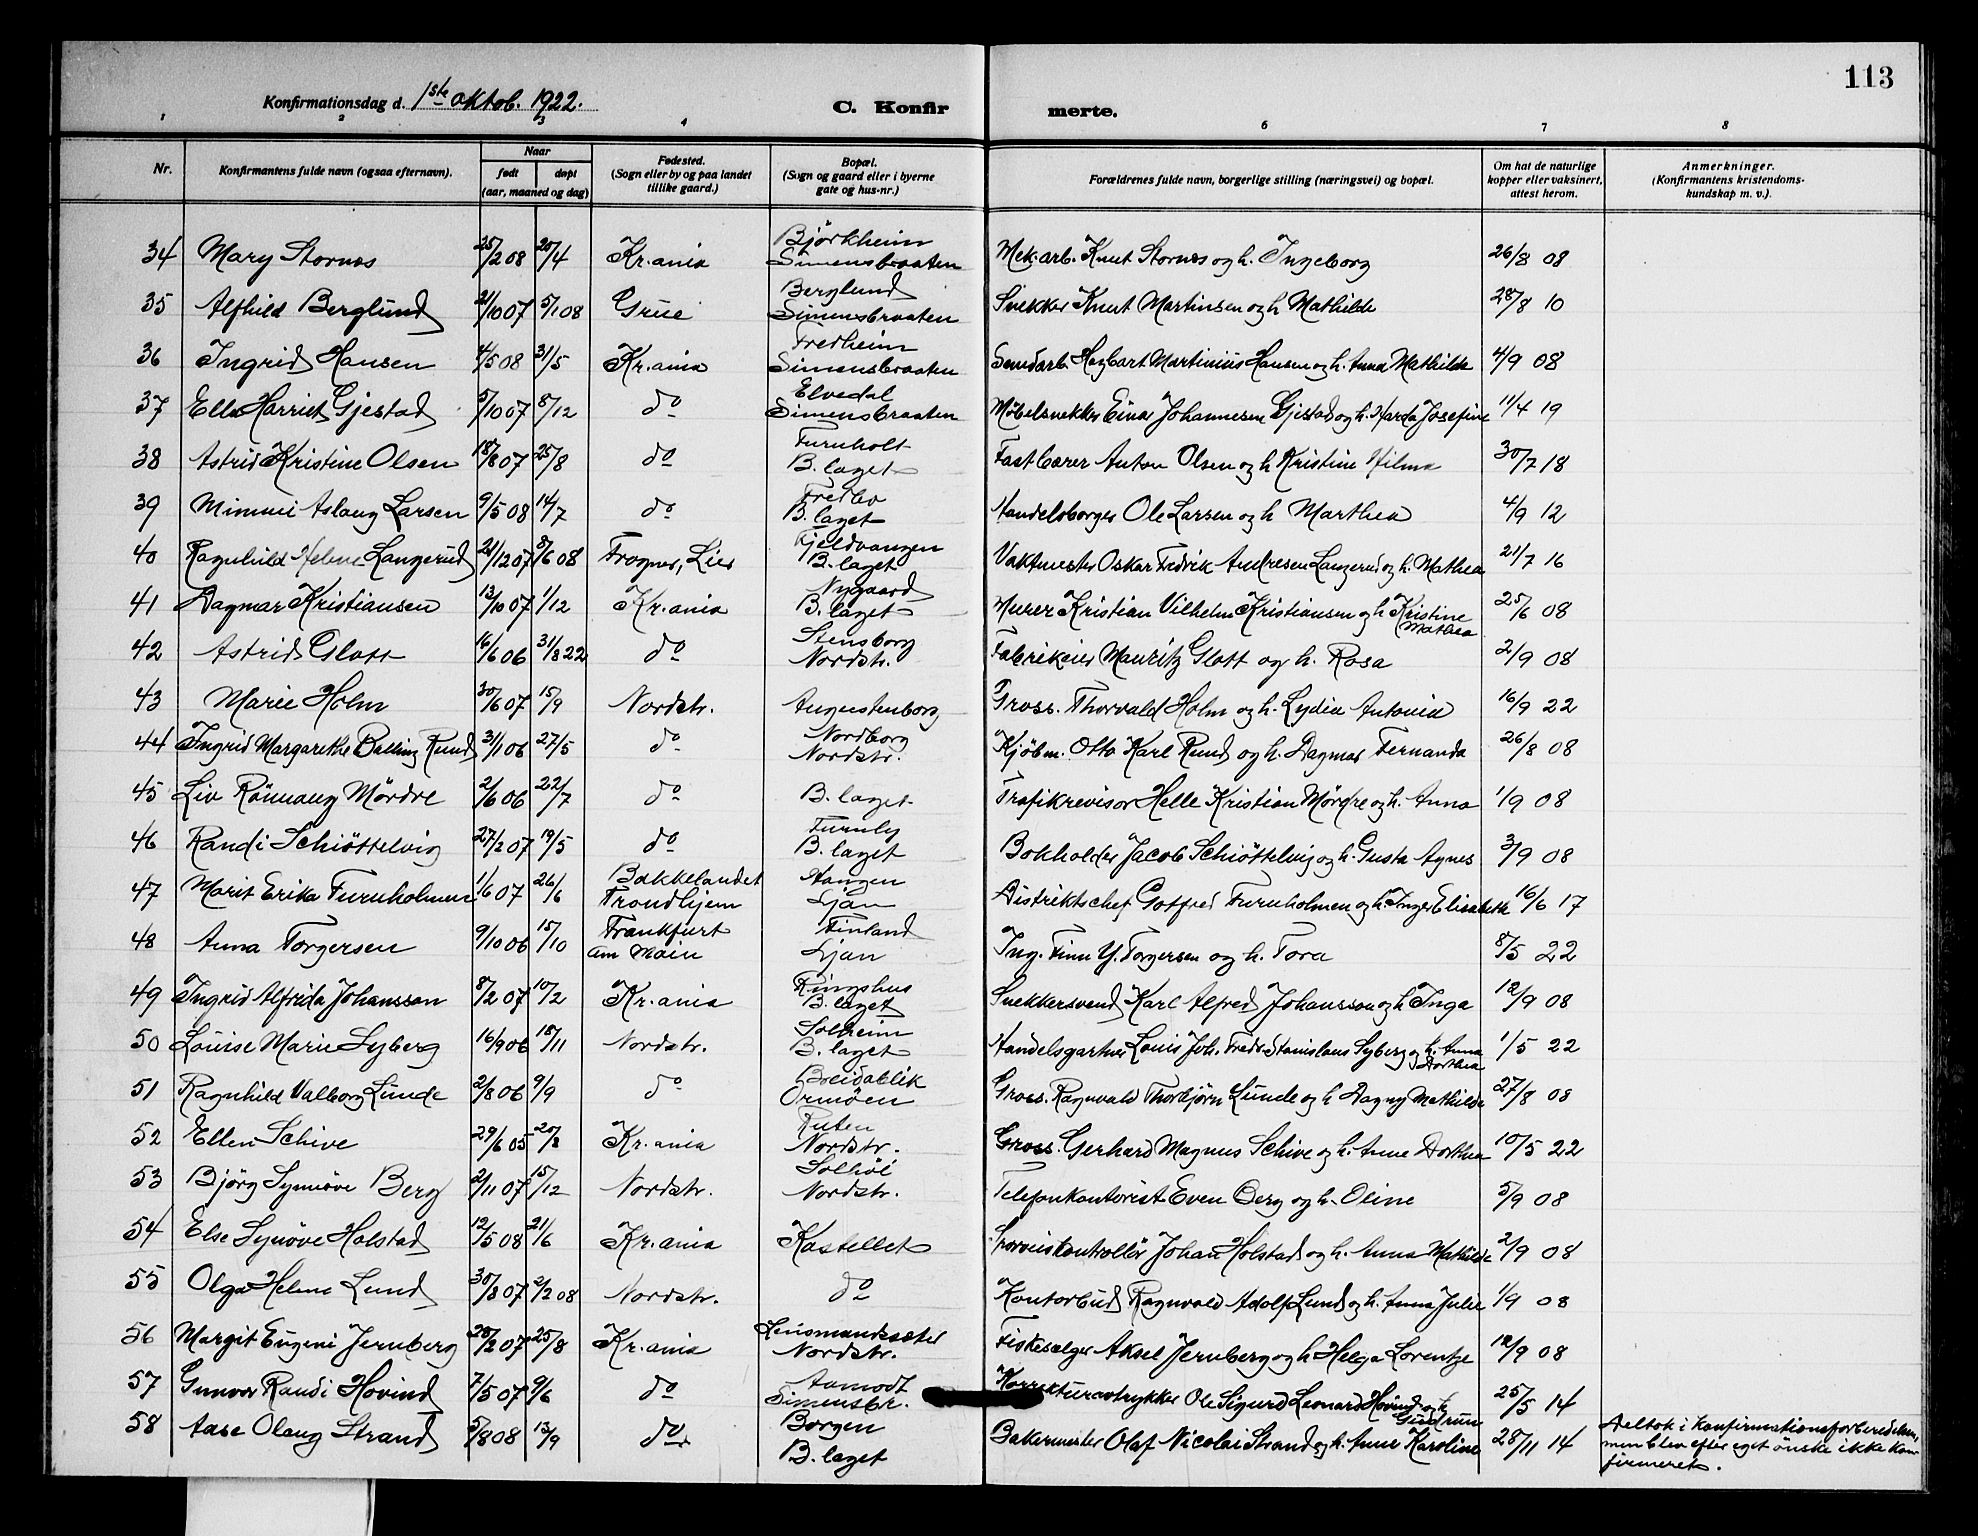 113
Konfirmationsdag d. 1ste oktob. 1922.
C. Konfir merte.
1 2 3 4 6 7 8
Nr.
Konfirmantens fulde navn (ogsaa efternavn).
Naar
født døpt
(aar, maaned og dag)
Fødested.
(Sogn eller by og paa landet
tillike gaard.)
Bopæl.
(Sogn og gaard eller i byerne
gate og hus-nr.)
Forældrenes fulde navn, borgerlige stilling (næringsvei) og bopæl.
Om hat de naturlige
kopper eller vaksinert,
attest herom.
Anmerkninger.
(Konfirmantens kristendoms-
kundskap m. v.).
Björkheim
34 Mary Stornes 25/2 08 20/4 Kr.ania Simensbraaten Mek.arb. Knut Stornes og h. Ingeborg 26/8 08
Berglund
35 Alfhild Berglund 21/10 07 5/1 08 Grue Simensbraaten Snekker Knut Martinsen og h Mathilde 28/8 10
Fredheim
36 Ingrid Hansen 4/5 08 31/5 Kr.ania Simensbraaten Hagbart Martinius Hansen og h. Anna Mathilde 4/9 08
Elvedal
37 Ella Harriet Gjestad 5/10 07 8/12 do Simensbraaten Møbelsnekker Einar Johannesen Gjestad og h. Harda Josefine 11/4 19
Furuholt
38 Astrid Kristine Olsen 18/8 07 25/8 do B. laget Anton Olsen og h Kristine Hilma 30/7 18
Fredbo
39 Mimmi Aslaug Larsen 9/5 08 14/7 do B. laget Handelsborger Ole Larsen og h Marthea 4/9 12
Fjeldvangen
40 Ragnhild Helene Langerud 21/12 07 8/6 08 Frogner, Lier B. laget Vaktmester Oskar Fredrik Andresen Langerud og h. Mathea 21/7 16
Nygaard
41 Dagmar Kristiansen 13/10 07 1/12 Kr.ania B. laget Murer Kristian Vilhelm Kristiansen og h Kristine 25/6 08
Mathea
Stensborg
42 Astrid Glott 16/6 06 31/8 22 do Nordstr. Fabrikeier Mauritz Glott og h. Rosa 2/9 08
43 Marie Holm 30/6 07 15/9 Nordstr. Augustenborg Gross. Thorvald Holm og h. Lydia Antonia 16/9 22
Nordborg
44 Ingrid Margarethe Balling Rund 31/1 06 27/5 do Nordstr. Kjøbm. Otto Karl Rund og h. Dagmar Fernanda 26/8 08
45 Liv Rönnaug Mördre 2/6 06 22/7 do B. laget Trafikrevisor Helle Kristian Mørdre og h. Anna 1/9 08
Furuly
46 Randi Schiöttelvig 27/2 07 19/5 do B. laget Bokholder Jacob Schiöttelvig og h. Gusta Agnes 3/9 08
Bakkelandet Stangen
47 Marit Erika Furuholmen 1/6 07 26/6 Trondhjem Ljan Distriktschef Gotfred Furuholmen og h Inger Elisabeth 16/6 17
Frankfurt Finland
48 Anna Torgersen 9/10 06 15/10 am Main Ljan Ing. Finn Y. Torgersen og h. Tora 8/5 22
Ringshus
49 Ingrid Alfrida Johansson 8/2 07 10/2 Kr.ania B. laget Snekkersvend Karl Alfred Johansson og h Inga 12/9 08
Solheim
50 Louise Marie Syberg 16/9 06 18/11 Nordstr. B. laget Handelsgartner Louis Joh. Fredr. Stanislaus Syberg og h. Anna 1/5 22
Dorthea
Breidablik
51 Ragnhild Valborg Lunde 2/8 06 9/9 do Ormöen Gross. Ragnvald Thorbjörn Lunde og h Dagny Mathilde 27/8 08
Ruten
52 Ellen Schive 29/6 05 20/8 Kr.ania Nordstr. Gross. Gerhard Magnus Schive og h. Anne Dorthea 10/5 22
Solhöi
53 Björg Synnöve Berg 2/11 07 15/12 Nordstr. Nordstr. Telefonkontorist Even Berg og h. Oline 5/9 08
54 Else Synöve Holstad 12/5 08 21/6 Kr.ania Kastellet Sporveiskontrollör Johan Holstad og h. Anna Mathilde 2/9 08
55 Olga Helene Lund 30/8 07 2/2 08 Nordstr. do Kontorbud Ragnvald Adolf Lund og h. Anna Julie 1/9 08
Lensmandssæter
56 Margit Eugeni Jernberg 28/2 07 25/8 Kr.ania Nordstr. Fiskesælger Aksel Jernberg og h Helga Lorentze 12/9 08
Aamodt
57 Gunvor Randi Hovind 7/5 07 9/6 do Simensbr. Ole Sigurd Leonard Hovind og h. 25/5 14
Gudrun
58 Aase Olaug Strand 5/8 08 13/9 do Borgen Bakermester Olaf Nicolai Strand og h. Anne Karoline 28/11 14
B. laget
Deltok i konfirmationsforberedelsen,
men blev efter eget önske ikke kon-
firmeret.